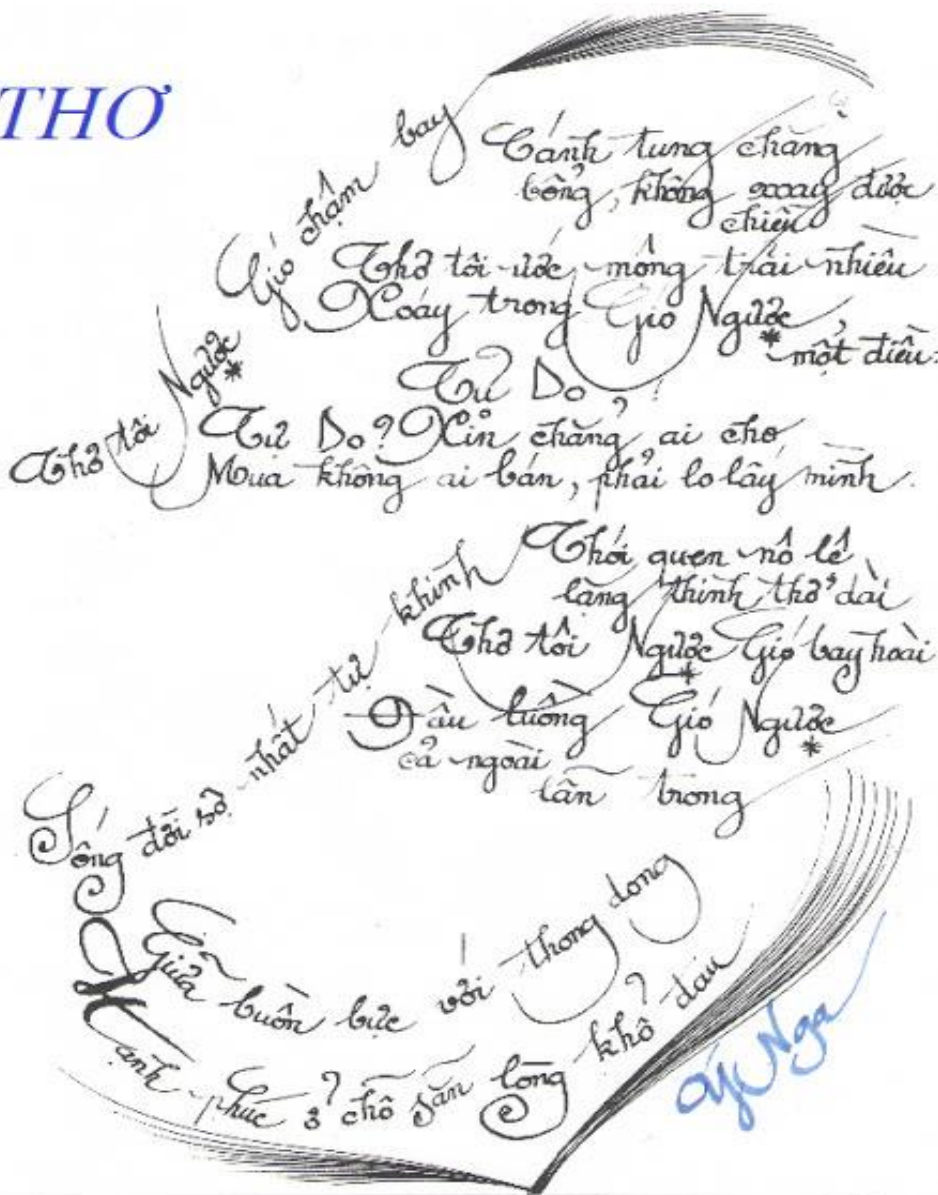 THƠ
Thơ tôi Ngược* Gió chậm bay
Cánh tung chẳng
bổng, không xoay được
chiều
Thơ tôi ước mộng trải nhiều
Xoáy trong Gió Ngược*,
một điều:
Tự Do?!
Tự Do? Xin chẳng ai cho,
Mua không ai bán, phải lo lấy mình.
Sống đời sợ nhất tự khinh
Thói quen nô lệ,
lặng thinh thở dài
Thơ tôi Ngược* Gió bay hoài
Dẫu luồng Gió Ngược*
cả ngoài
lẫn trong
Giữa buồn bực với thong dong
Hạnh phúc ở chỗ sẵn lòng khổ đau
Ý Nga